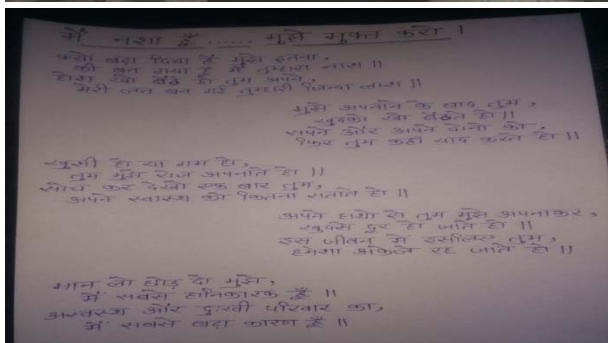 मैं नशा हूँ ...... मुझे मुक्त करो |
क्यों बढ़ा दिया है मुझे इतना,
की बन गया हूँ मैं तुम्हारा नाश ||
होश खो बैठे हो तुम अपने,
मेरी लत बन गई तुम्हारी जिन्दा लाश ||
मुझे अपनाने के बाद तुम,
खुदको खो बैठते हो ||
सपने और अपने दोनो को,
फिर तुम कहाँ याद करते हो ||
खुशी हो या गम हो,
तुम मुझे रोज अपनाते हो ||
सोच कर देखो एक बार तुम,
अपने स्वास्थ को कितना सताते हो ||
अपने हाथो से तुम मुझे अपनाकर,
खुदसे दूर हो जाते हो ||
इस जीवन में इसलिए तुम,
हमेशा अकेले रह जाते हो ||
मान लो छोड़ दो मुझे,
मैं सबसे हानिकारक हूँ ||
अस्वस्थ और दुःखी परिवार का,
मैं सबसे बड़ा कारण हूँ ||